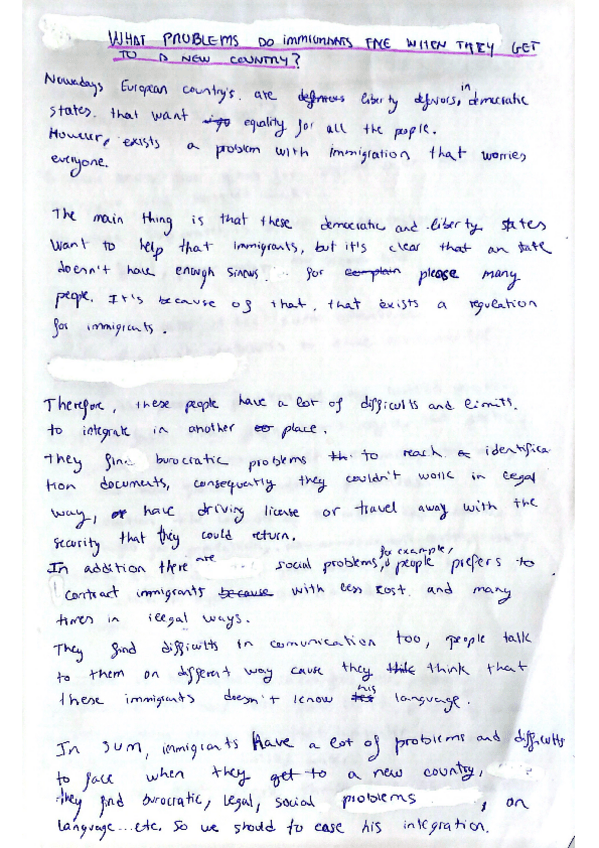 WHAT PROBLEMS DO IMMIGRANTS FACE WHEN THEY GET
TO A NEW COUNTRY?
Nowadays European country's are liberty defensors, in democratic
states. that want equality for all the people.
However, exists a problem with immigration that worries
everyone.
The main thing is that these democratic and liberty states
want to help that immigrants, but it's clear that an state
doesn't have enough for please many
people. It's because of that, that exists a regulation
for immigrants.
Therefore, these people have a lot of difficults and limits.
to integrate in another place.
They find burocratic problems to reach identifica
tion documents, consequently they couldn't work in legal
way, or have driving license or travel away with the
security that they could return.
In addition there are social problems, for example, people prefers to
contract immigrants with less cost. and many
times in ilegal ways.
They find difficults in comunication too, people talk
to them on different way cause they think that
these immigrants doesn't know his language.
In sum, immigrants have a lot of problems and difficults
to face when they get to a new country,
they find burocratic, legal, social problems, on
language...etc. So we should to ease his integration.